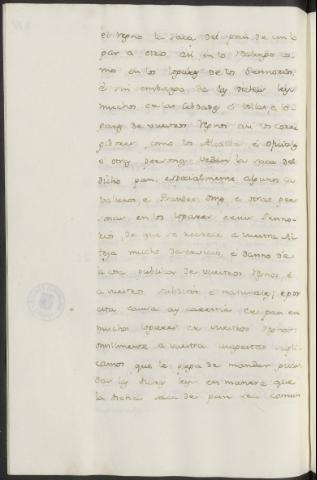 el Reyno la saca del pan de un lo
par a otro, asi en lo Realengo co
mo en los lopares de los Sennorios,
é sin embargo de la dicha ley
muchos en las cibdades é villas, é lo
pares de vuestros Reynos asi los corre
pidores, como los Alcaldes é oficiales
é otras personas vedan la saca del
dicho pan, especialmente algunos ca
balleros é Grandes omes, é otras per
sonas en los lopares é en sus Senno
rios, de que se recrece a vuestra Al
teza mucho deservicio, é danno de
la cosa publica de vuestros Reynos é
a vuestros subditos é naturales; é por
esta causa ay carestia de pan en
muchos lopares de vuestros Reynos:
omilmente a vuestra merced supli
camos, que le plega de mandar guar
dar la dicha ley en manera que
la dicha saca de pan sea comun